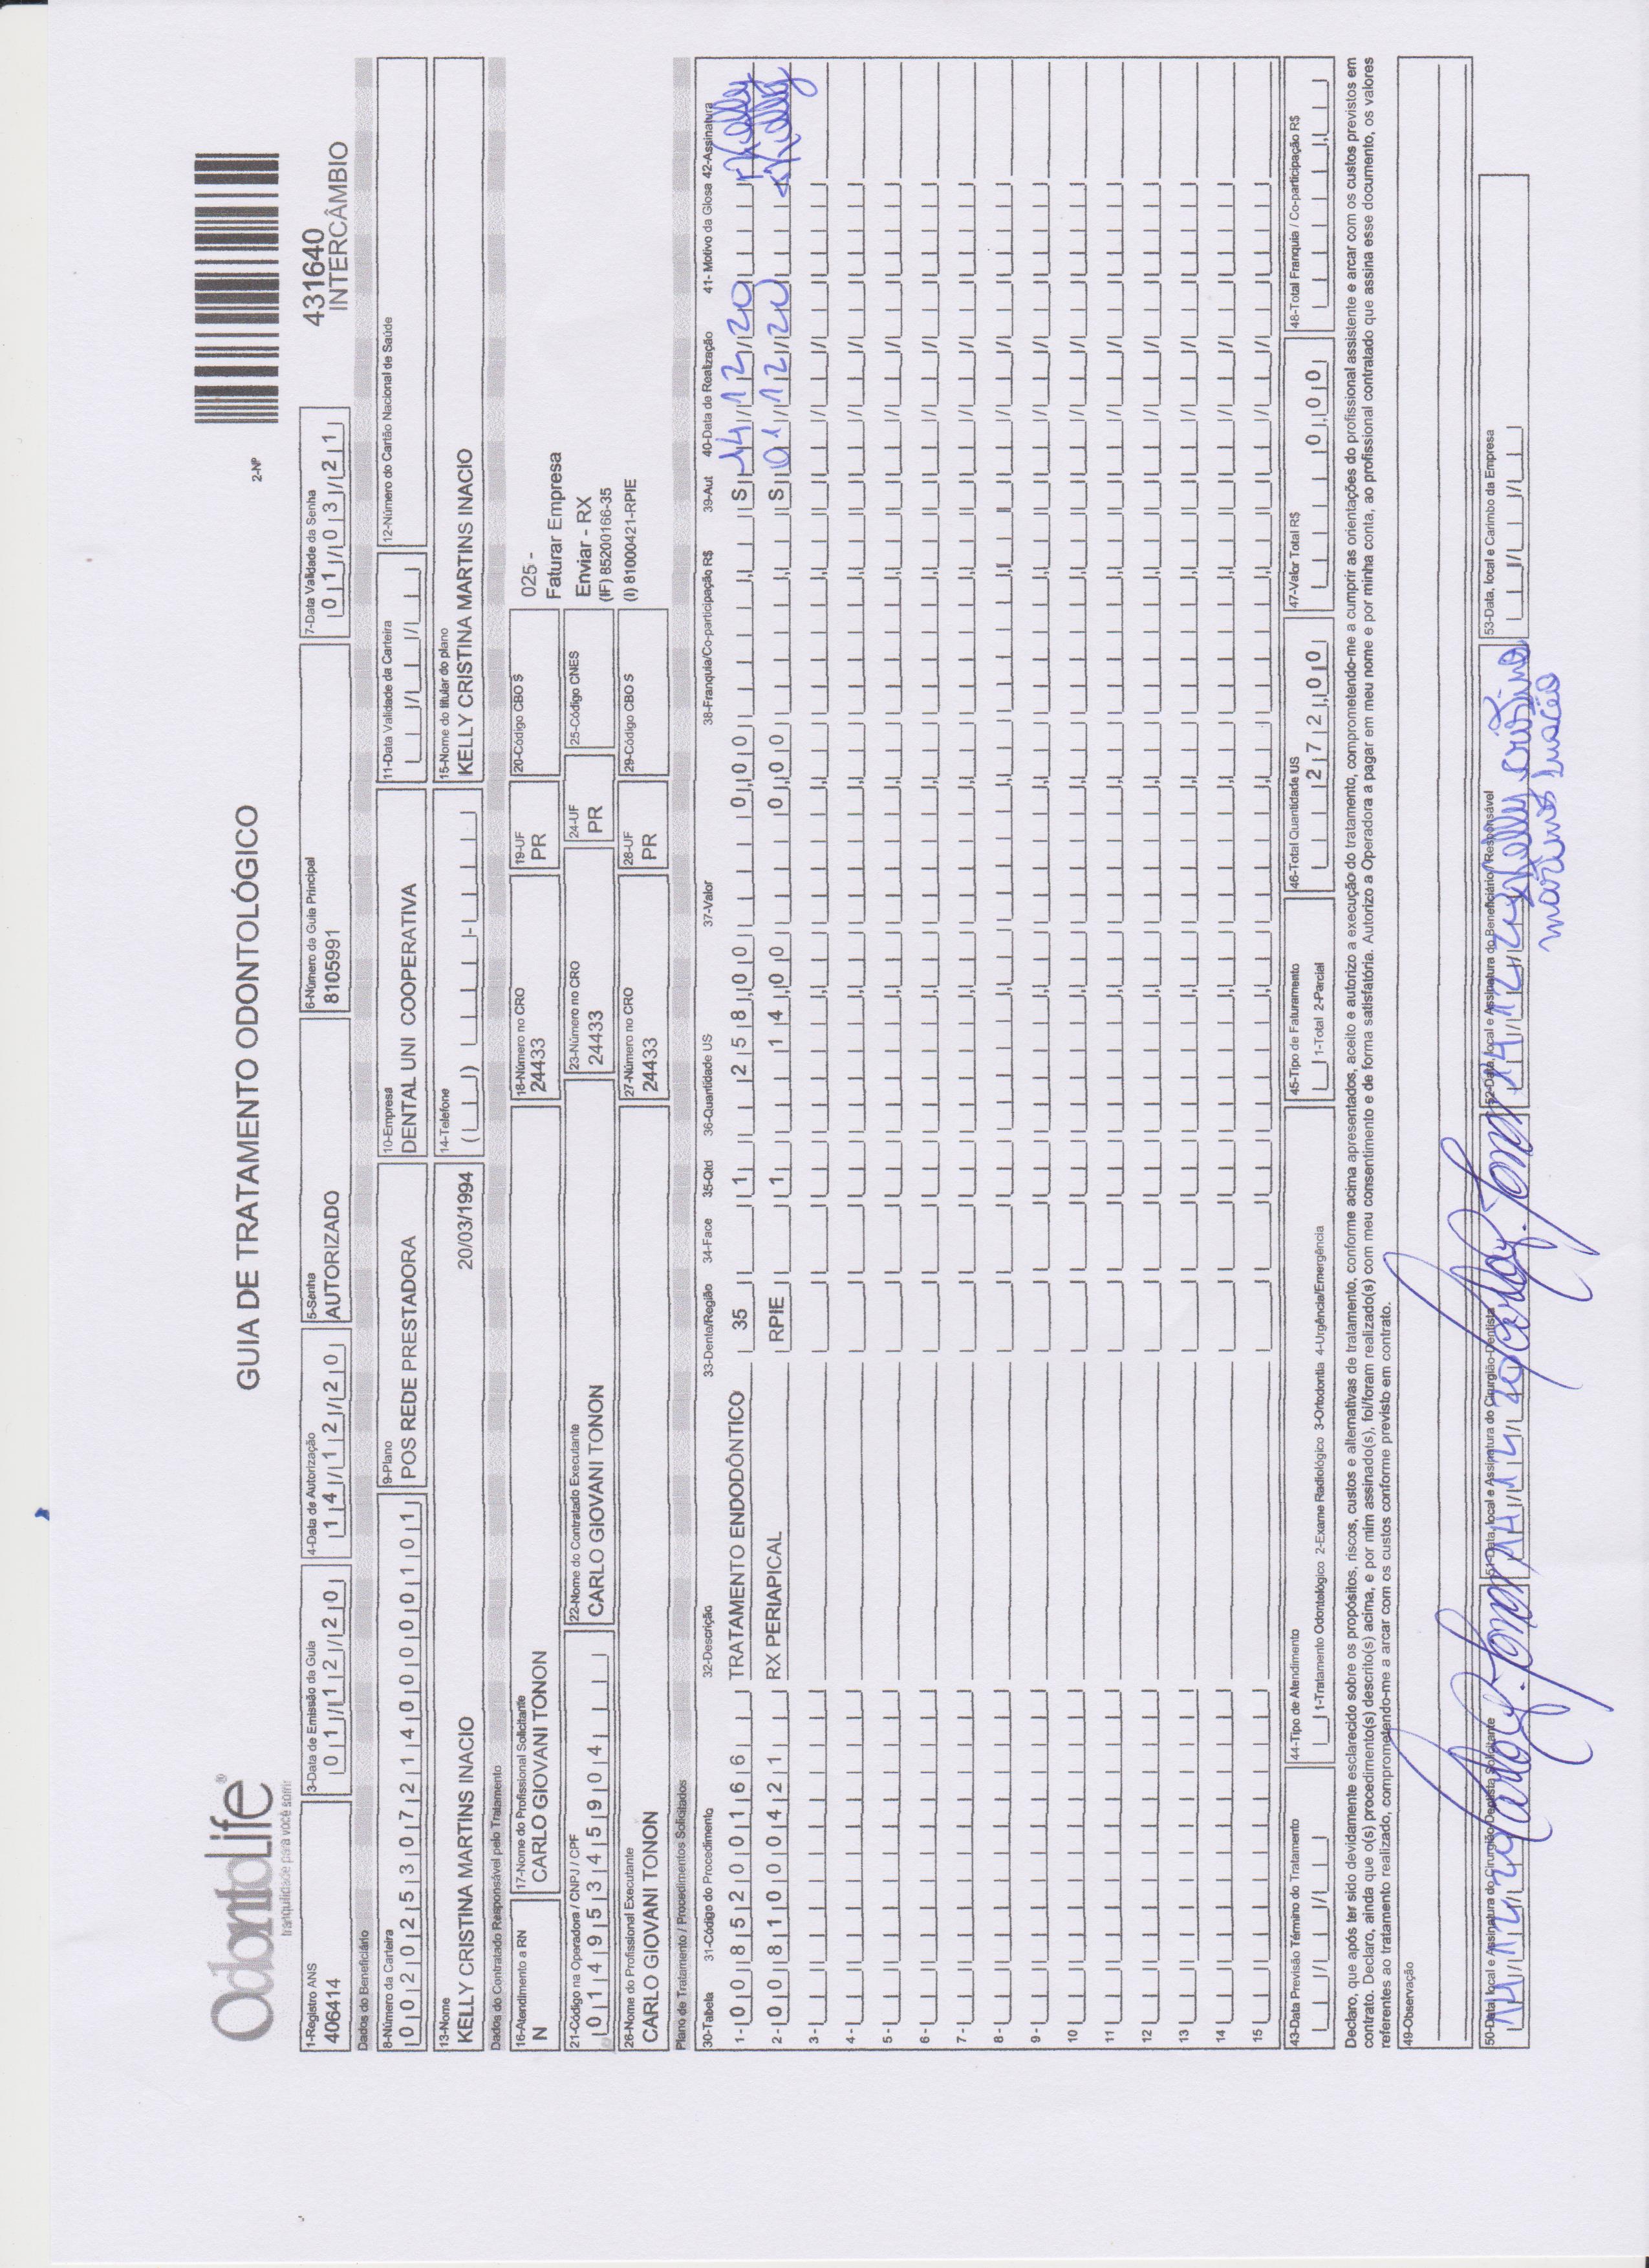 OdontoLife®
tranquilidade para você sorrir
GUIA DE TRATAMENTO ODONTOLÓGICO
2-NP
431640
INTERCÂMBIO
1-Registro ANS
406414
3-Data de Emissão da Guia
01/12/20
4-Data de Autorização
14/12/20
5-Senha
AUTORIZADO
6-Número da Guia Principal
8105991
7-Data Validade da Senha
01/03/21
Dados do Beneficiário
8-Número da Carteira
00202530721400000101
9-Plano
POS REDE PRESTADORA
10-Empresa
DENTAL UNI COOPERATIVA
11-Data Validade da Carteira
12-Número do Cartão Nacional de Saúde
13-Nome
KELLY CRISTINA MARTINS INACIO
20/03/1994
14-Telefone
15-Nome do titular do plano
KELLY CRISTINA MARTINS INACIO
Dados do Contratado Responsável pelo Tratamento
16-Atendimento a RN
N
17-Nome do Profissional Solicitante
CARLO GIOVANI TONON
18-Número no CRO
24433
19-UF
PR
20-Código CBO S
025 -
Faturar Empresa
Enviar - RX
(IF) 85200166-35
(I) 81000421-RPIE
21-Código na Operadora / CNPJ / CPF
01495345904
22-Nome do Contratado Executante
CARLO GIOVANI TONON
23-Número no CRO
24433
24-UF
PR
25-Código CNES
26-Nome do Profissional Executante
CARLO GIOVANI TONON
27-Número no CRO
24433
28-UF
PR
29-Código CBO S
Plano de Tratamento / Procedimentos Solicitados
30-Tabela 31-Código do Procedimento 32-Descrição 33-Dente/Região 34-Face 35-Qtd 36-Quantidade US 37-Valor 38-Franquia/Co-participação R$ 39-Aut 40-Data de Realização 41- Motivo da Glosa 42-Assinatura
1- 00 85200166 TRATAMENTO ENDODÔNTICO 35 1 258,00 0,00 S 14/12/20 Kelly
2- 00 81000421 RX PERIAPICAL RPIE 1 14,00 0,00 S 01/12/20 Kelly
3-
4-
5-
6-
7-
8-
9-
10
11
12
13
14
15
43-Data Previsão Término do Tratamento
44-Tipo de Atendimento
1-Tratamento Odontológico 2-Exame Radiológico 3-Ortodontia 4-Urgência/Emergência
45-Tipo de Faturamento
1-Total 2-Parcial
46-Total Quantidade US
272,00
47-Valor Total R$
0,00
48-Total Franquia / Co-participação R$
Declaro, que após ter sido devidamente esclarecido sobre os propósitos, riscos, custos e alternativas de tratamento, conforme acima apresentados, aceito e autorizo a execução do tratamento, comprometendo-me a cumprir as orientações do profissional assistente e arcar com os custos previstos em
contrato. Declaro, ainda que o(s) procedimento(s) descrito(s) acima, e por mim assinado(s), foi/foram realizado(s) com meu consentimento e de forma satisfatória. Autorizo a Operadora a pagar em meu nome e por minha conta, ao profissional contratado que assina esse documento, os valores
referentes ao tratamento realizado, comprometendo-me a arcar com os custos conforme previsto em contrato.
49-Observação
50-Data, local e Assinatura do Cirurgião-Dentista Solicitante
14/12/20 Carlo G. Tonon
51-Data, local e Assinatura do Cirurgião-Dentista
14/12/20 Carlo G. Tonon
52-Data, local e Assinatura do Beneficiário / Responsável
14/12/2 Kelly Cristina
Martins Inacio
53-Data, local e Carimbo da Empresa